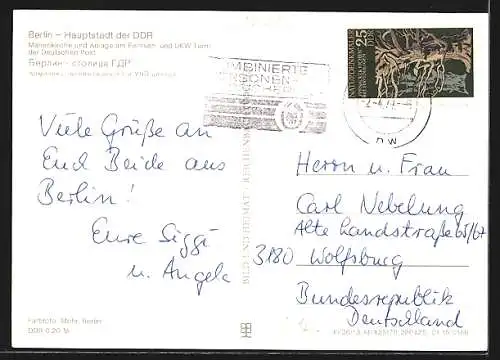 Berlin – Hauptstadt der DDR
Marienkirche und Anlage am Fernseh- und UKW-Turm
der Deutschen Post
Берлин – столица ГДР
KOMBINIERTE
PERSONEN-
25
DDR
nw
Viele Grüße an
Euch Beide aus
Berlin!
Eure Siggi
u. Angela
Herrn u. Frau
Carl Nebelung
Alte Landstraße 65/67
3180 Wolfsburg
Bundesrepublik
Deutschland
BILD UND HEIMAT · REICHENBACH
Farbfoto: Mohr, Berlin
DDR 0,20 M